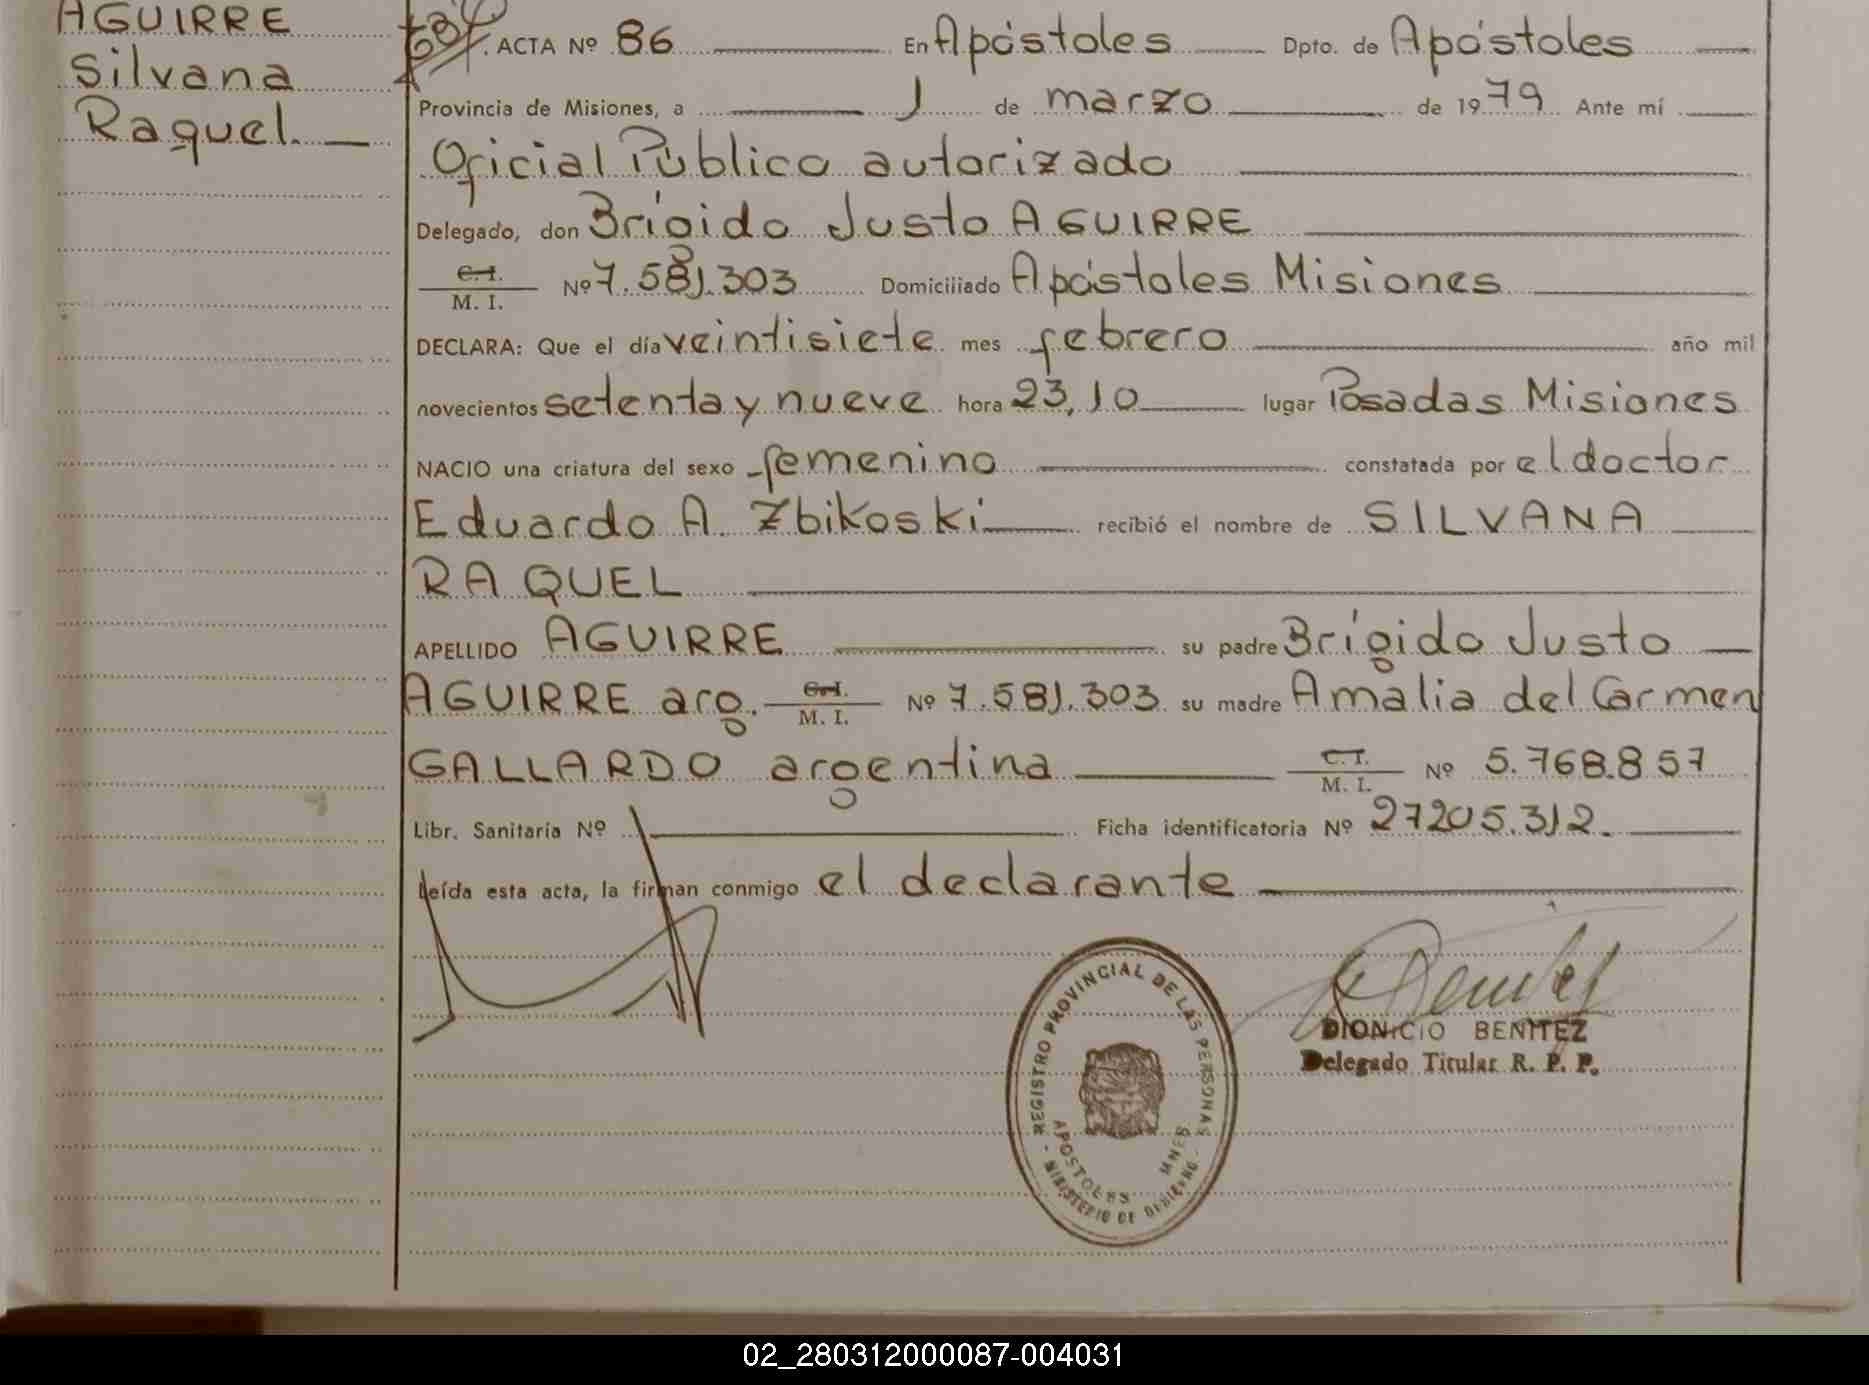 AGUIRRE
Silvana
Raquel.
ACTA Nº 86 En Apóstoles Dpto. de Apóstoles
Provincia de Misiones, a 1 de marzo de 1979 Ante mí
Oficial Público autorizado
Delegado, don Brígido Justo AGUIRRE
C.I. M. I. Nº 7.581.303 Domiciliado Apóstoles Misiones
DECLARA: Que el día veintisiete mes febrero año mil
novecientos setenta y nueve hora 23,10 lugar Posadas Misiones
NACIO una criatura del sexo femenino constatada por el doctor
Eduardo A. Zbikoski recibió el nombre de SILVANA
RAQUEL
APELLIDO AGUIRRE su padre Brígido Justo
AGUIRRE arg. C.I. M. I. Nº 7.581.303 su madre Amalia del Carmen
GALLARDO argentina C.I. M. I. Nº 5.768.857
Libr. Sanitaria Nº Ficha identificatoria Nº 27205.312.
Leída esta acta, la firman conmigo el declarante
REGISTRO PROVINCIAL DE LAS PERSONAS
APOSTOLES MNES
- MINISTERIO DE GOBIERNO -
Benitez
DIONICIO BENITEZ
Delegado Titular R. P. P.
02_280312000087-004031